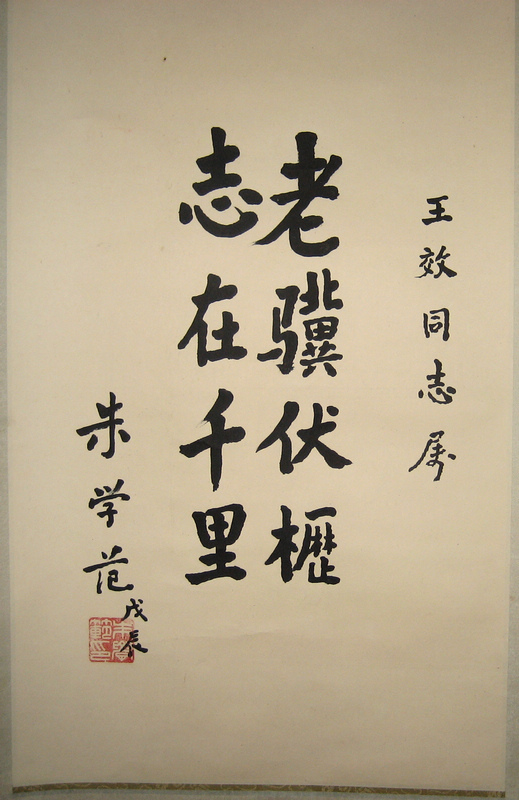 王效同志属
老骥伏枥
志在千里
朱学范
戊辰